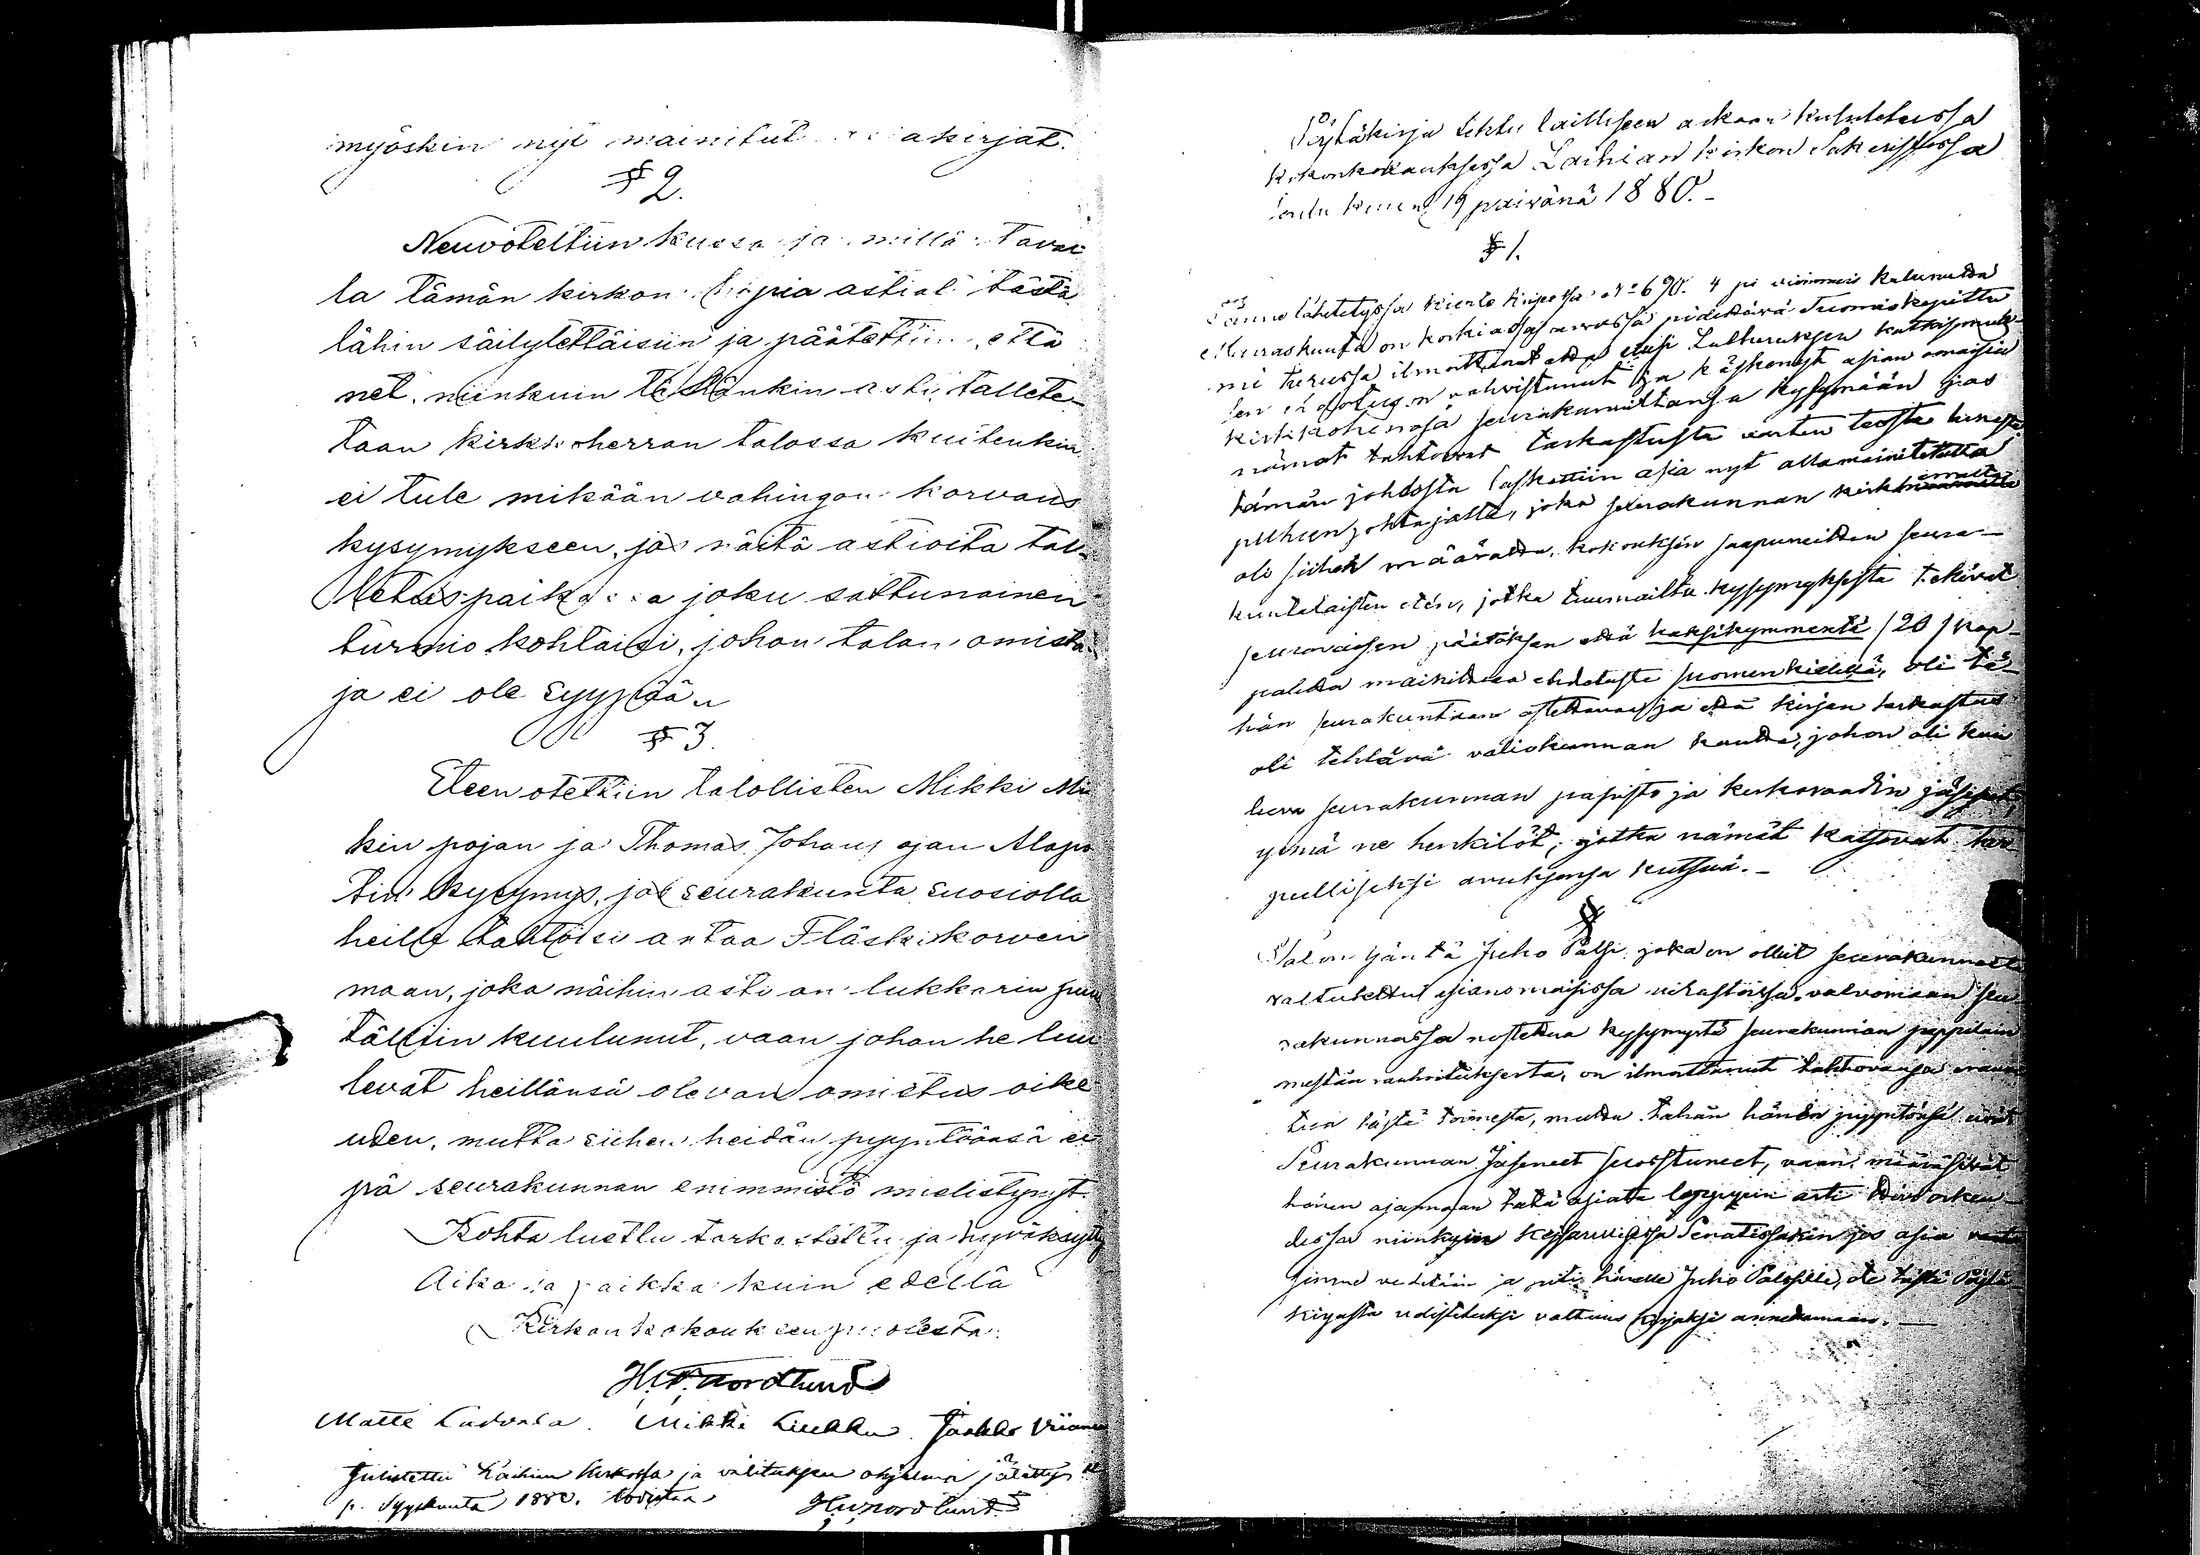 myöskin nyt mainitut asiakirjat.
§ 2.
Neuvoteltiin kussa ja millä taval
la tämän kirkon hopia astiat tästä
lähin säilytettäisiin ja päätettiin, että
net, niinkuin tähänkin asti, tallete-
taan kirkkoherran talossa kuitenkin
ei tule mikään vahingon korvaus
kysymykseen, jos näitä astioita tal-
letuspaikassa joku sattunainen
turmio kohtaisi, johon talon omista
ja ei ole syypää.
§ 3.
Eteen otettiin talollisten Mikki Mi
kin pojan ja Thomas Johans ojan Alapa
tin kysymys, jos seurakunta suosiolla
heille tahtoisi antaa Fläskikorven
maan, joka näihin asti on lukkarin puu
tälliin kuulunut, vaan johon he luu
levat heillänsä olevan omistus oike
uden, mutta siihen heidän pyyntöönsä ei
pä seurakunnan enimmistö mielistynyt.
Kohta luettu tarkastettu ja hyväksytty
Aika ja paikka kuin edellä
Kirkonkokouksen puolesta:
H. W. Nordlund
Matti Mikki Liukku. Jaakko
Julistettu Laihian kirkossa ja valituksen
p. Syyskuuta 1880. todistaa
H. W. Nordlund
Pöytäkirja tehty lailliseen aikaan kuulutetussa
kirkonkokouksessa Laihian kirkon Sakeristossa
Joulu kuun 19 päivänä 1880.-
§ 1.
Tänne lähetetyssä kierto kirjeessä No 690. 4 pi viimmeis kulunutta
Marraskuuta on korkiassa arvossa pidettävä Tuomiokapittu
mi Turussa ilmoittanut että uusi Lutheruksen katkismuk-
sen ehdotus on valmistunut ja käskenyt asian omaisia
kirkkoherroja seurakunniltansa kysymään jos
nämät tahtovat tarkastusta varten teosta
tämän johdosta laskettiin asia nyt allamainitetulta
puheenjohtajalta, joka seurakunnan
oli siihen määrätty, kokouksen saapuneitten seura-
kuntalaisten eteen, jotka tuumailtu kysymyksestä tekivät
seuraavaisen päätöksen että kaksikymmentä (20) kap-
paletta mainittua ehdotusta suomenkielellä, oli tä-
hän seurakuntaan otettava ja että kirjan tarkastus
oli tehtävä valiokunnan kautta, johon oli kuu
luva seurakunnan papisto ja kirkoraadin jäsenet,
ynnä ne henkilöt, jotka nämät katsovat tar-
peellisiksi avuksensa kutsua.-
§
Talon isäntä Juho Palsi joka on ollut seurakunnalta
valtutettu asianomaisissa virastoissa valvomaan seu
rakunnassa nostettua kysymystä seurakunnan pappilain
metsän rauhoituksesta, on ilmoittanut tahtovansa
tua tästä toimesta, mutta tähän hänen pyyntönsä eivät
Seurakunnan Jäsenet suostuneet, vaan määräsivät
hänen ajamaan tätä asiata loppuun asti
dessa niinkuin Keisarillisessa Senatissakin jos asia
sinne vedetään ja piti hänelle Juho Palsille, ote tästä Pöytä-
kirjasta uudistetuksi valtuus kirjaksi annettamaan.